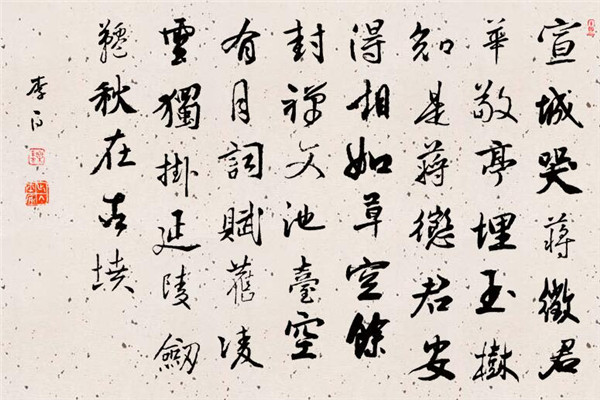 宣城哭蔣徵君
華敬亭埋玉樹
知是蔣徵君安
得相如草空餘
封禪文池臺空
有月詞賦舊凌
雲獨掛延陵劒
韆秋在古墳
李白